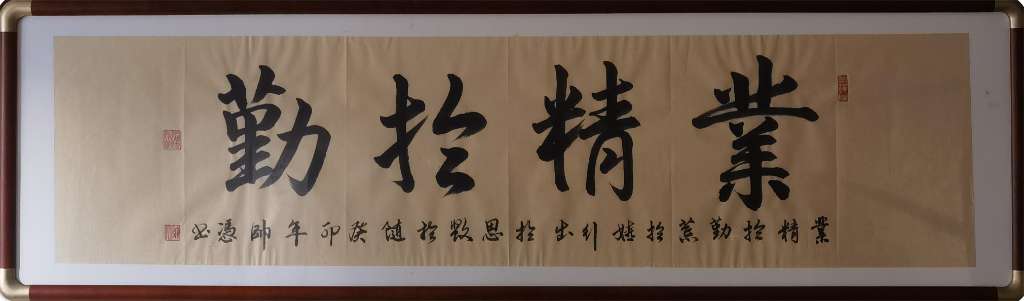 業精於勤
業精於勤荒於嬉行出於思毀於随癸卯年帥憑书